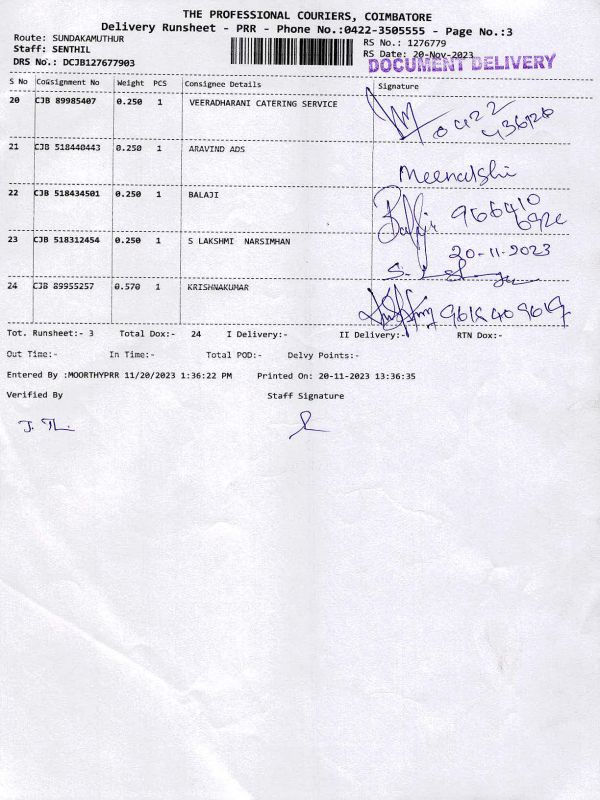 THE PROFESSIONAL COURIERS, COIMBATORE
Delivery Runsheet - PRR - Phone No.:0422-3505555 - Page No.:3
Route: SUNDAKAMUTHUR
RS No.: 1276779
Staff: SENTHIL
RS Date: 20-Nov-2023
DRS No.: DCJB127677903
DOCUMENT DELIVERY
S No Consignment No Weight PCS Consignee Details Signature
20 CJB 89985407 0.250 1 VEERADHARANI CATERING SERVICE
0422
21 CJB 518440443 0.250 1 ARAVIND ADS
Meenakshi
22 CJB 518434501 0.250 1 BALAJI
Balaji 966410
23 CJB 518312454 0.250 1 S LAKSHMI NARSIMHAN
20-11-2023
24 CJB 89955257 0.570 1 KRISHNAKUMAR
Tot. Runsheet:- 3 Total Dox:- 24 I Delivery:- II Delivery:- RTN Dox:-
Out Time:- In Time:- Total POD:- Delvy Points:-
Entered By :MOORTHYPRR 11/20/2023 1:36:22 PM Printed On: 20-11-2023 13:36:35
Verified By Staff Signature